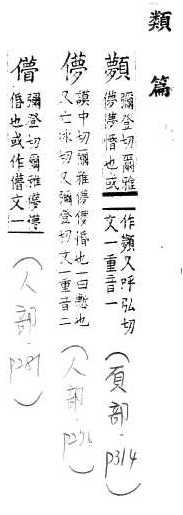 類篇
顭彌登切爾雅儚儚惛也或作顭又呼弘切文一重音一（頁部·p314）
儚謨中切爾雅儚儚惛也一曰慙也又亡冰切又彌登切文一重音二（人部·p276）
儚彌登切爾雅儚儚惛也或作懜文一（人部·p281）